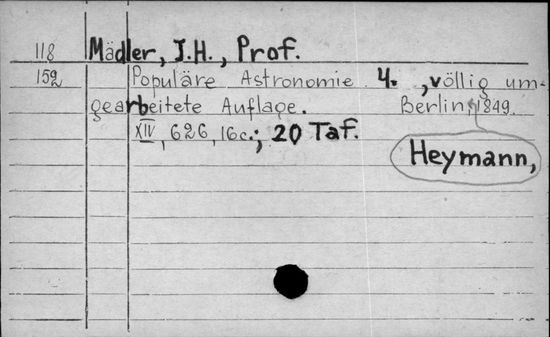 118 Mädler, J.H., Prof.
152 Populäre Astronomie. 4., völlig um-
gearbeitete Auflage. Berlin, 1849.
XIV, 626, 16c.; 20 Taf.
Heymann,